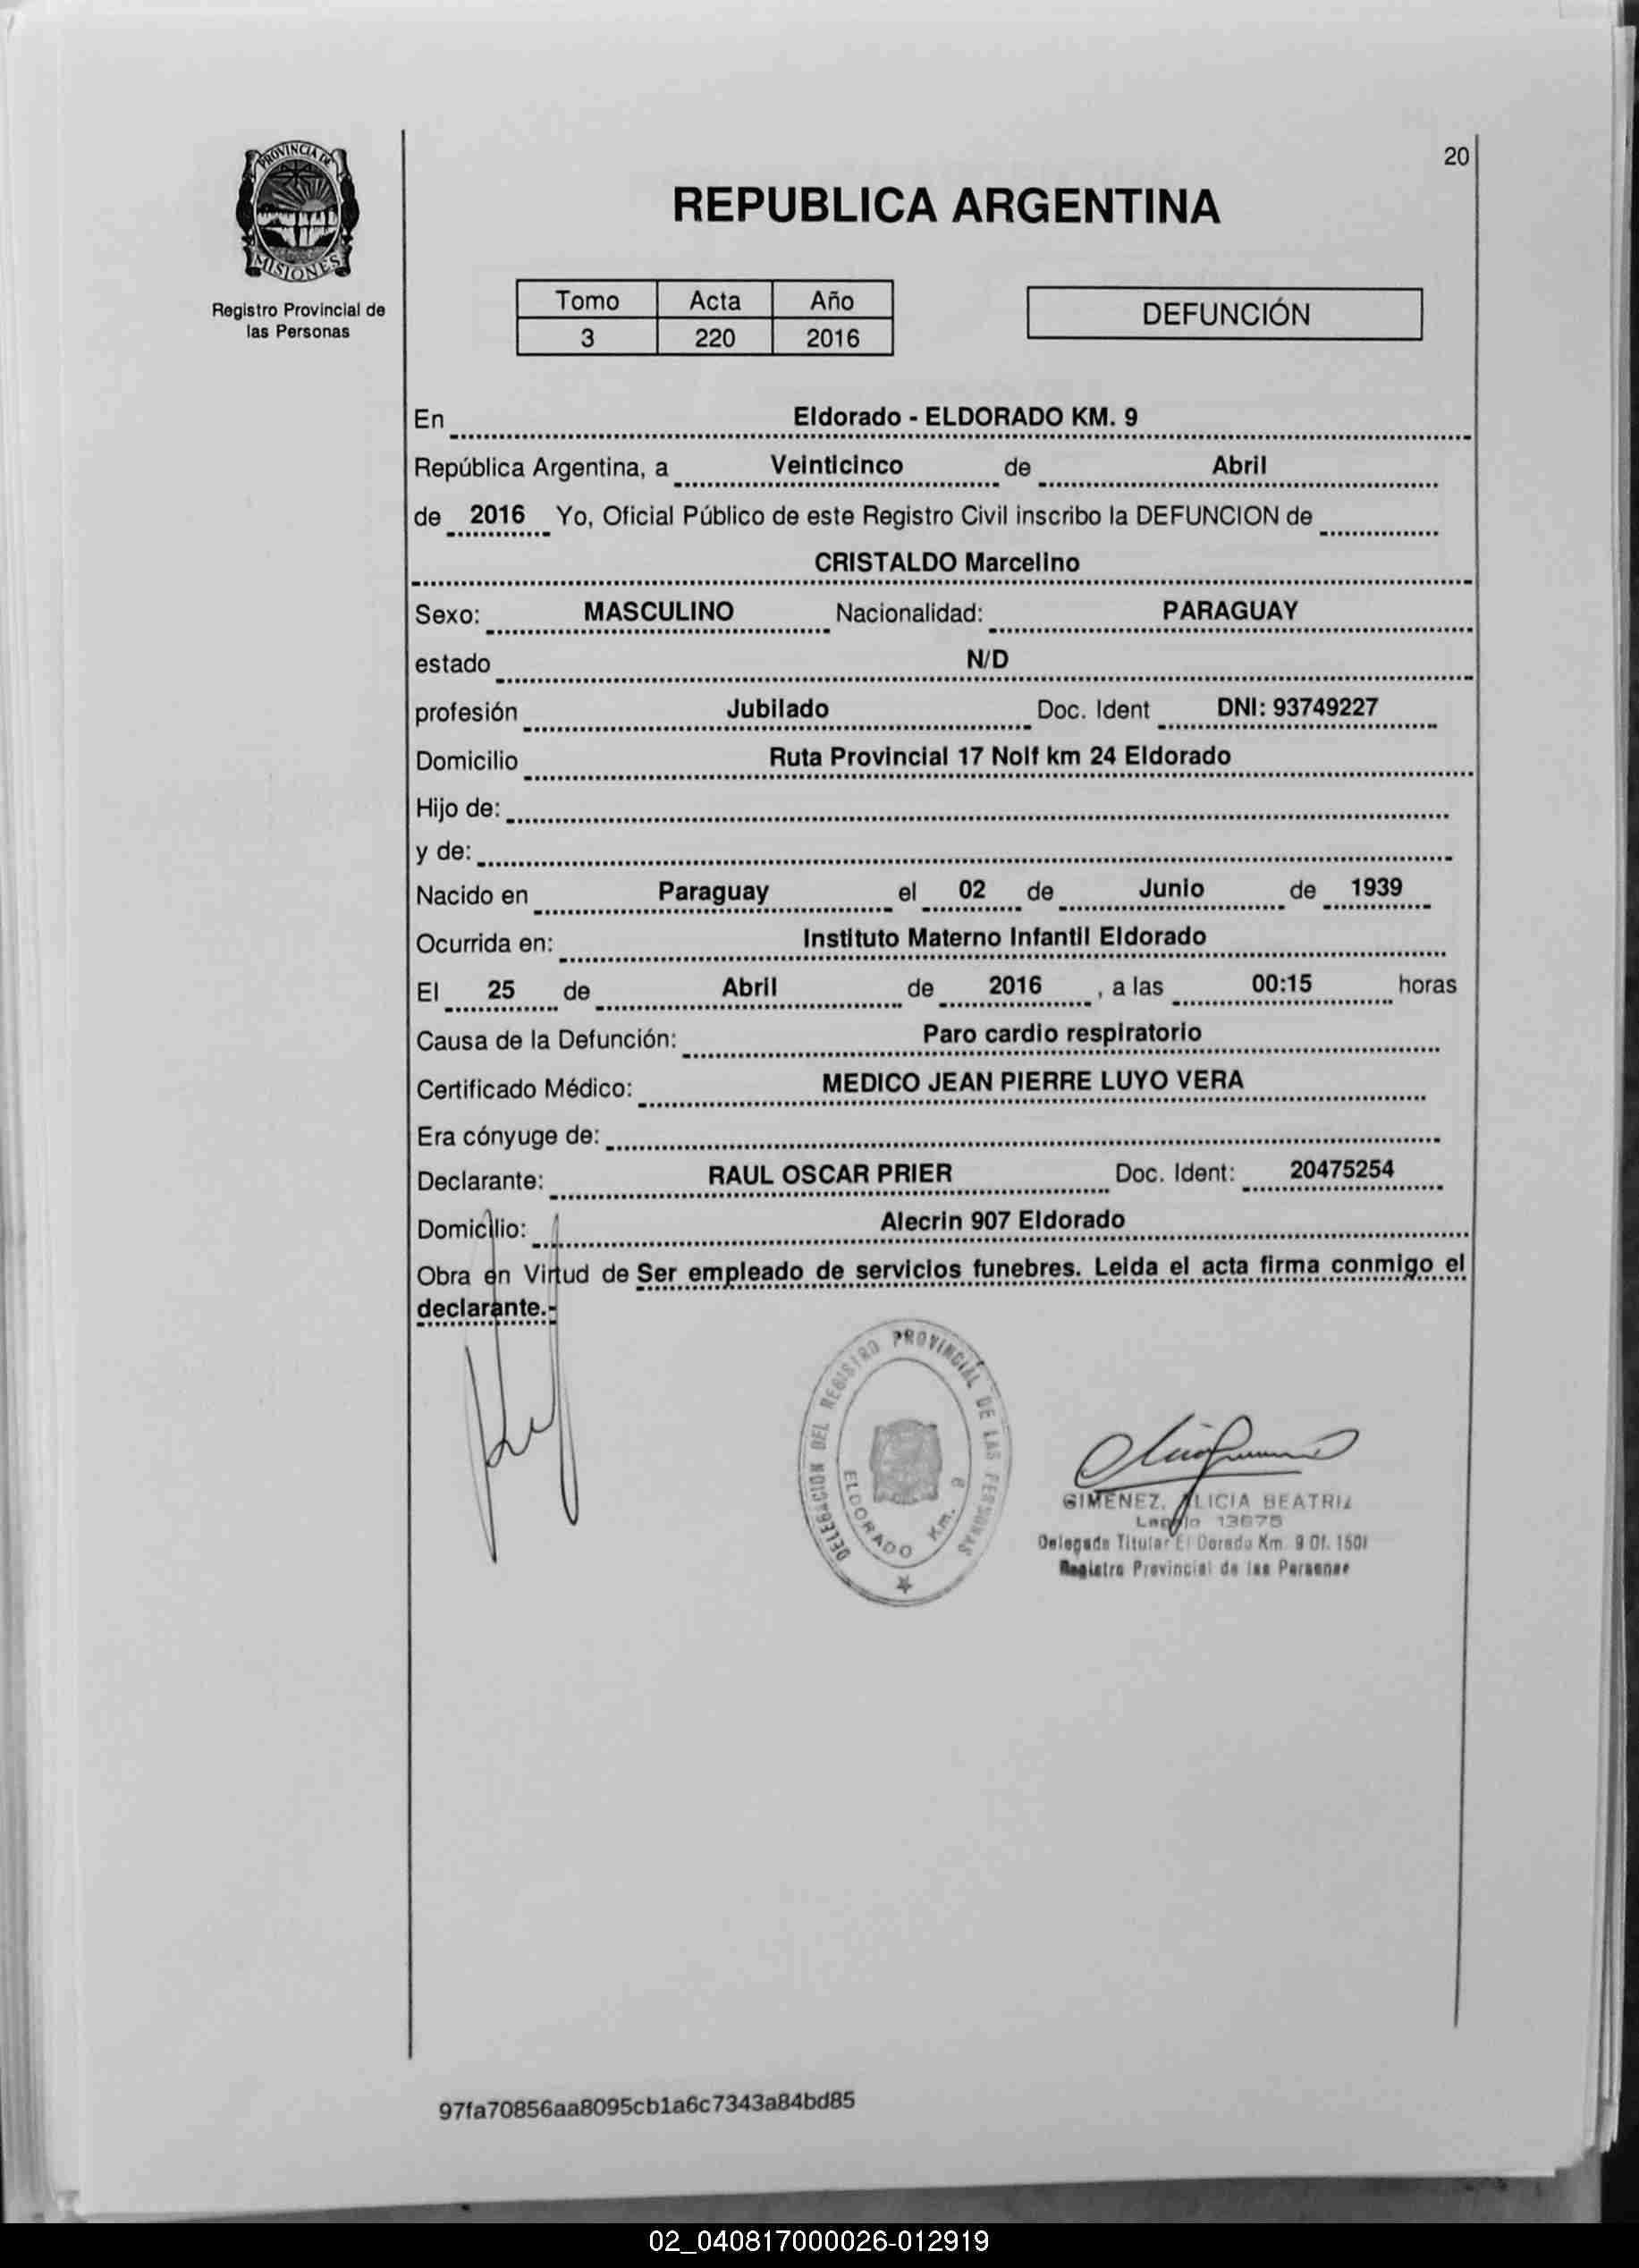 20
PROVINCIA DE
MISIONES
Registro Provincial de
las Personas
REPUBLICA ARGENTINA
Tomo Acta Año
3 220 2016
DEFUNCIÓN
En Eldorado - ELDORADO KM. 9
República Argentina, a Veinticinco de Abril
de 2016 Yo, Oficial Público de este Registro Civil inscribo la DEFUNCION de
CRISTALDO Marcelino
Sexo: MASCULINO Nacionalidad: PARAGUAY
estado N/D
profesión Jubilado Doc. Ident DNI: 93749227
Domicilio Ruta Provincial 17 Nolf km 24 Eldorado
Hijo de:
y de:
Nacido en Paraguay el 02 de Junio de 1939
Ocurrida en: Instituto Materno Infantil Eldorado
El 25 de Abril de 2016 , a las 00:15 horas
Causa de la Defunción: Paro cardio respiratorio
Certificado Médico: MEDICO JEAN PIERRE LUYO VERA
Era cónyuge de:
Declarante: RAUL OSCAR PRIER Doc. Ident: 20475254
Domicilio: Alecrin 907 Eldorado
Obra en Virtud de Ser empleado de servicios funebres. Leida el acta firma conmigo el
declarante.-
DELEGACION DEL REGISTRO PROVINCIAL DE LAS PERSONAS
ELDORADO Km.
GIMENEZ, ALICIA BEATRIZ
Legajo 13675
Delegada Titular El Dorado Km 9 Of. 1501
Registro Provincial de las Personas
97fa70856aa8095cb1a6c7343a84bd85
02_040817000026-012919